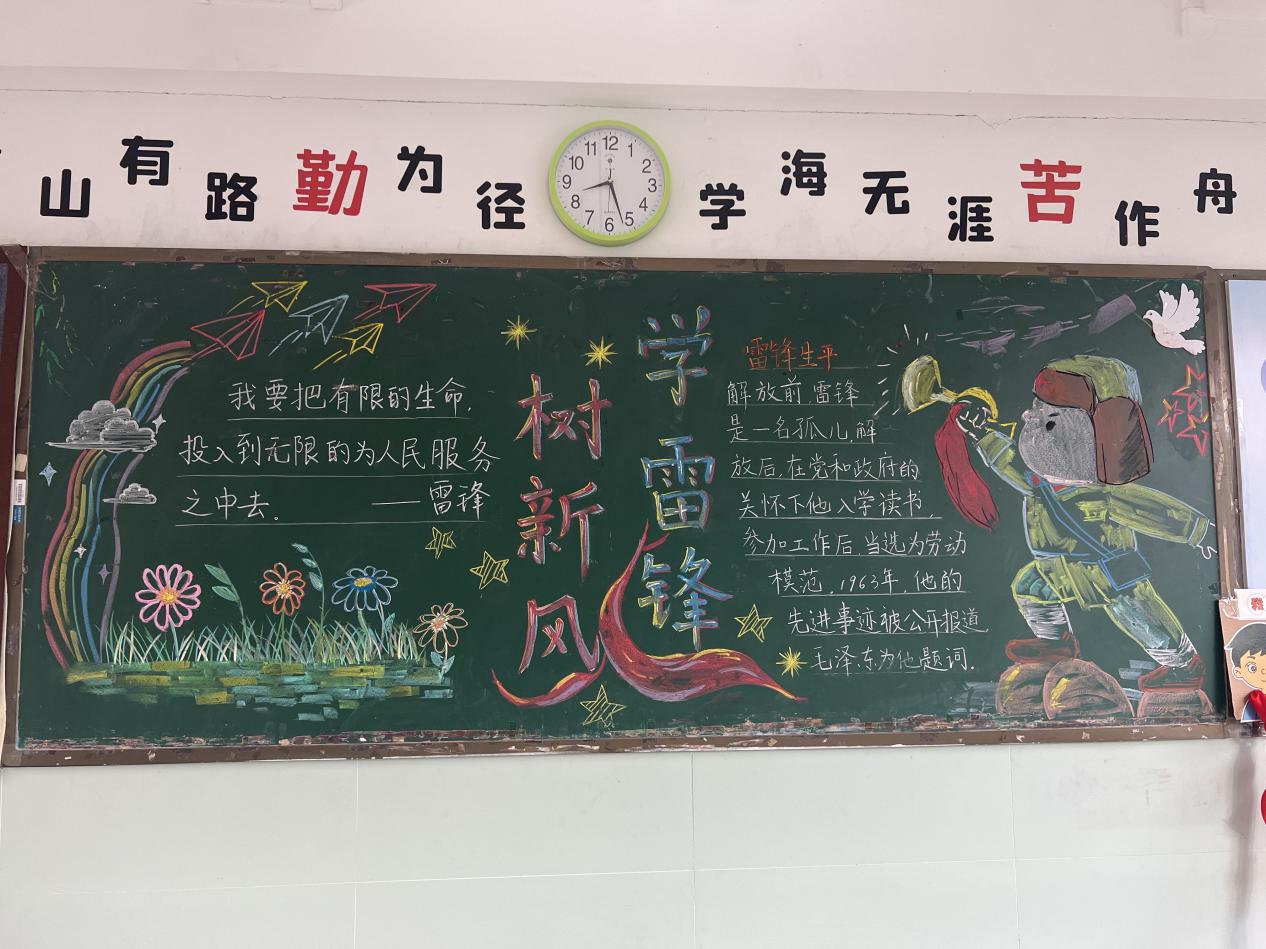 山有路勤为径
学海无涯苦作舟
12
1
2
3
4
5
6
7
8
9
10
11
我要把有限的生命,
投入到无限的为人民服务
之中去。——雷锋
树新风
学雷锋
雷锋生平
解放前,雷锋
是一名孤儿,解
放后,在党和政府的
关怀下他入学读书,
参加工作后,当选为劳动
模范。1963年,他的
先进事迹被公开报道
毛泽东为他题词.